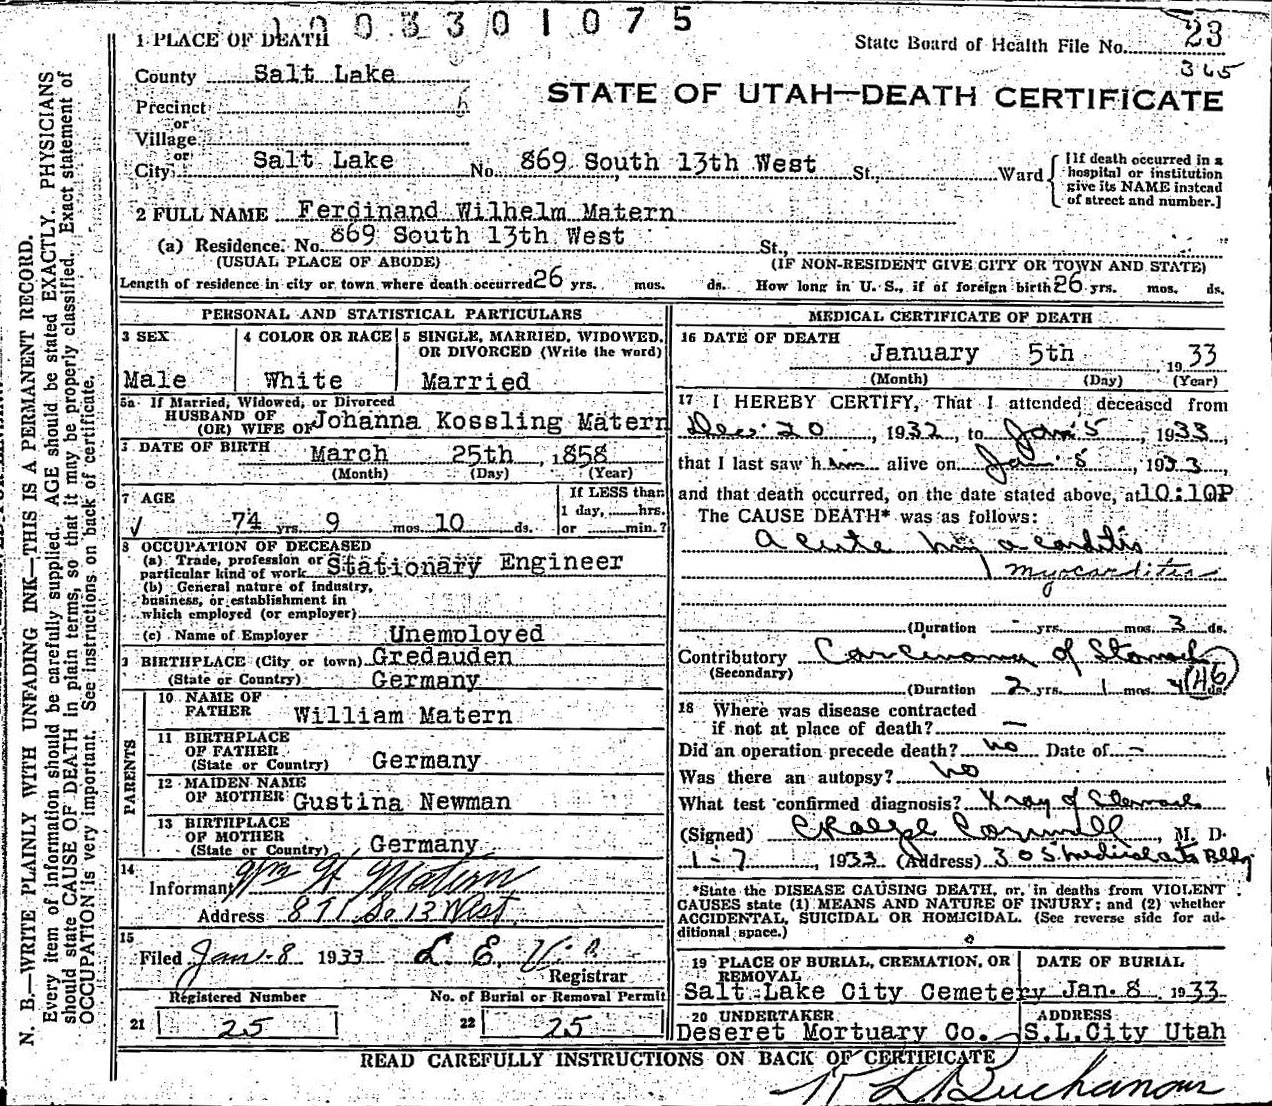 1003301075
1 PLACE OF DEATH
State Board of Health File No. 23
365
County Salt Lake
STATE OF UTAH—DEATH CERTIFICATE
Precinct
or
Village
or
City Salt Lake No. 869 South 13th West St., Ward
[If death occurred in a
hospital or institution
give its NAME instead
of street and number.]
2 FULL NAME Ferdinand Wilhelm Matern
(a) Residence. No. 869 South 13th West St.,
(USUAL PLACE OF ABODE) (IF NON-RESIDENT GIVE CITY OR TOWN AND STATE)
Length of residence in city or town where death occurred 26 yrs. mos. ds. How long in U. S., if of foreign birth 26 yrs. mos. ds.
PERSONAL AND STATISTICAL PARTICULARS
3 SEX
Male
4 COLOR OR RACE
White
5 SINGLE, MARRIED, WIDOWED,
OR DIVORCED (Write the word)
Married
5a If Married, Widowed, or Divorced
HUSBAND OF
(OR) WIFE OF Johanna Kossling Matern
DATE OF BIRTH March 25th, 1858
(Month) (Day) (Year)
7 AGE
74 yrs. 9 mos. 10 ds.
If LESS than
1 day, hrs.
or min.?
8 OCCUPATION OF DECEASED
(a) Trade, profession or
particular kind of work Stationary Engineer
(b) General nature of industry,
business, or establishment in
which employed (or employer)
(c) Name of Employer Unemployed
BIRTHPLACE (City or town) Gredauden
(State or Country) Germany
PARENTS
10 NAME OF
FATHER William Matern
11 BIRTHPLACE
OF FATHER
(State or Country) Germany
12 MAIDEN NAME
OF MOTHER Gustina Newman
13 BIRTHPLACE
OF MOTHER
(State or Country) Germany
14
Informant Wm H Matern
Address 871 So 13 West
15
Filed Jan-8 1933 L. E.
Registrar
Registered Number
21 25
No. of Burial or Removal Permit
22 25
MEDICAL CERTIFICATE OF DEATH
16 DATE OF DEATH
January 5th, 1933
(Month) (Day) (Year)
17 I HEREBY CERTIFY, That I attended deceased from
Dec 20, 1932, to Jan 5, 1933,
that I last saw him alive on Jan 5, 1933,
and that death occurred, on the date stated above, at 10:10P
The CAUSE DEATH* was as follows:
Acute myocarditis
myocarditis
(Duration - yrs. mos. 3 ds.
Contributory Carcinoma of Stomach
(Secondary)
(Duration 2 yrs. 1 mos. 4 ds.
(46)
18 Where was disease contracted
if not at place of death? —
Did an operation precede death? no Date of -
Was there an autopsy? no
What test confirmed diagnosis? Xray of Stomach
(Signed) C Ralph Cornwall, M. D.
1-7, 1933 (Address) 305 Medical Arts Bldg
*State the DISEASE CAUSING DEATH, or, in deaths from VIOLENT
CAUSES state (1) MEANS AND NATURE OF INJURY; and (2) whether
ACCIDENTAL, SUICIDAL OR HOMICIDAL. (See reverse side for ad-
ditional space.)
19 PLACE OF BURIAL, CREMATION, OR
REMOVAL
Salt Lake City Cemetery
DATE OF BURIAL
Jan. 8, 1933
20 UNDERTAKER
Deseret Mortuary Co.
ADDRESS
S.L.City Utah
READ CAREFULLY INSTRUCTIONS ON BACK OF CERTIFICATE
R L Buchanan
N. B.—WRITE PLAINLY WITH UNFADING INK—THIS IS A PERMANENT RECORD.
Every item of information should be carefully supplied. AGE should be stated EXACTLY. PHYSICIANS
should state CAUSE OF DEATH in plain terms, so that it may be properly classified. Exact statement of
OCCUPATION is very important. See instructions on back of certificate.